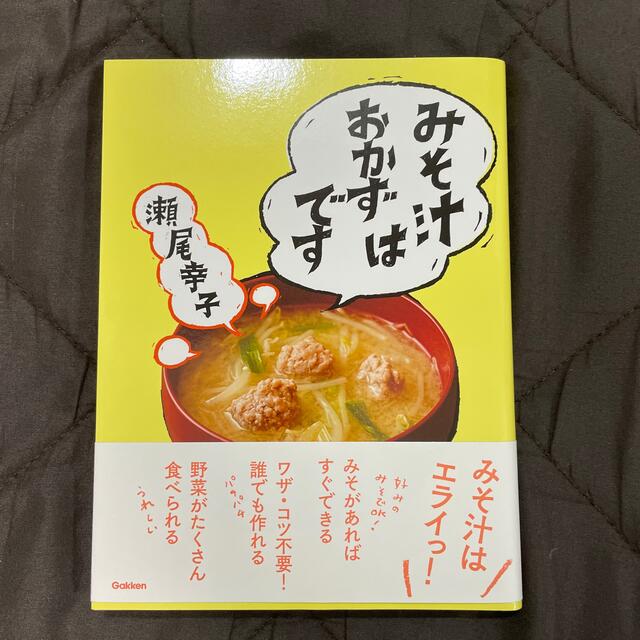 みそ汁は
おかず
です
瀬尾幸子
みそ汁は
エライっ!
好みの
みそでOK!
みそがあれば
すぐできる
ワザ・コツ不要!
誰でも作れる
パパッと
野菜がたくさん
食べられる
うれしい
Gakken